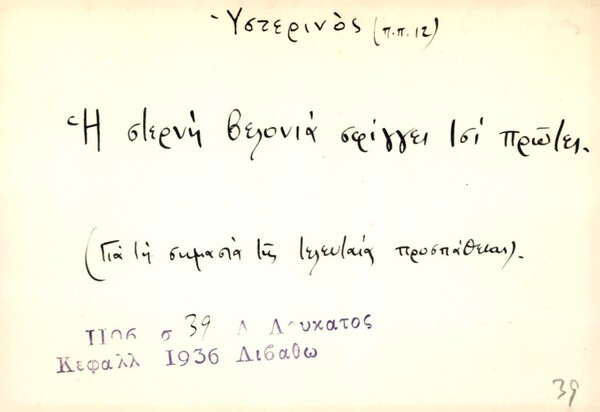 Ὑστερινὸς (π.π. 12)
Ἡ στερνὴ βελονιὰ σφίγγει τσὶ πρῶτες.
(Γιὰ τὴ σημασία τῆς τελευταίας προσπάθειας).
1106 σ 39 Δ Λουκατος
Κεφαλλ 1936 Λιβαθω
39